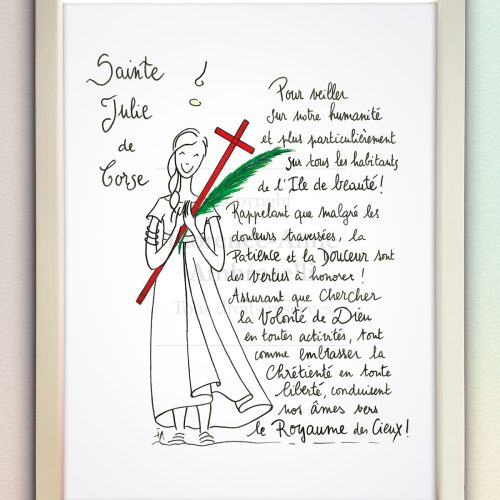 Sainte
Julie
de
Corse
Pour veiller
sur notre humanité
et plus particulièrement
sur tous les habitants
de l'Ile de beauté!
Rappelant que malgré les
douleurs traversées, la
Patience et la Douceur sont
des vertus à honorer!
Assurant que Chercher
la Volonté de Dieu
en toutes activités, tout
comme embrasser la
Chrétienté en toute
liberté, conduisent
nos âmes vers
le Royaume des Cieux!